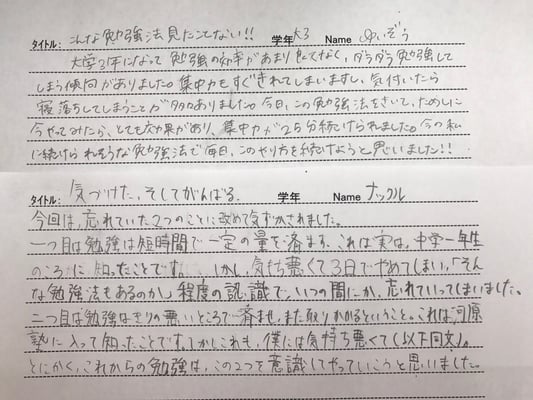 タイトル: こんな勉強法見たことない!! 学年 大3 Name ゆいぞう
大学3年になって勉強の効率があまり良くなく、ダラダラ勉強して
しまう傾向がありました。集中力もすぐきれてしまいますし、気付いたら
寝落ちしてしまうことが多々ありました。今日、この勉強法をきいて、ためしに
今やってみたら、とても効果があり、集中力が25分続けられました。今の私
に続けられそうな勉強法で毎日、このやり方を続けようと思いました!!
タイトル: 気づけた、そしてがんばる。 学年 Name ナックル
今回は、忘れていた2つのことに改めて気づかされました。
一つ目は勉強は短時間で一定の量を済ます、これは実は、中学一年生
のころに知ったことです。しかし、気持ち悪くて3日でやめてしまい、「そん
な勉強法もあるのか」程度の認識で、いつの間にか、忘れていってしまいました。
二つ目は勉強はきりの悪いところで済ませ、また取りかかるということ。これは河原
塾に入って知ったことです。しかしこれも、僕には気持ち悪くて(以下同文)。
とにかく、これからの勉強は、この2つを意識してやっていこうと思いました。